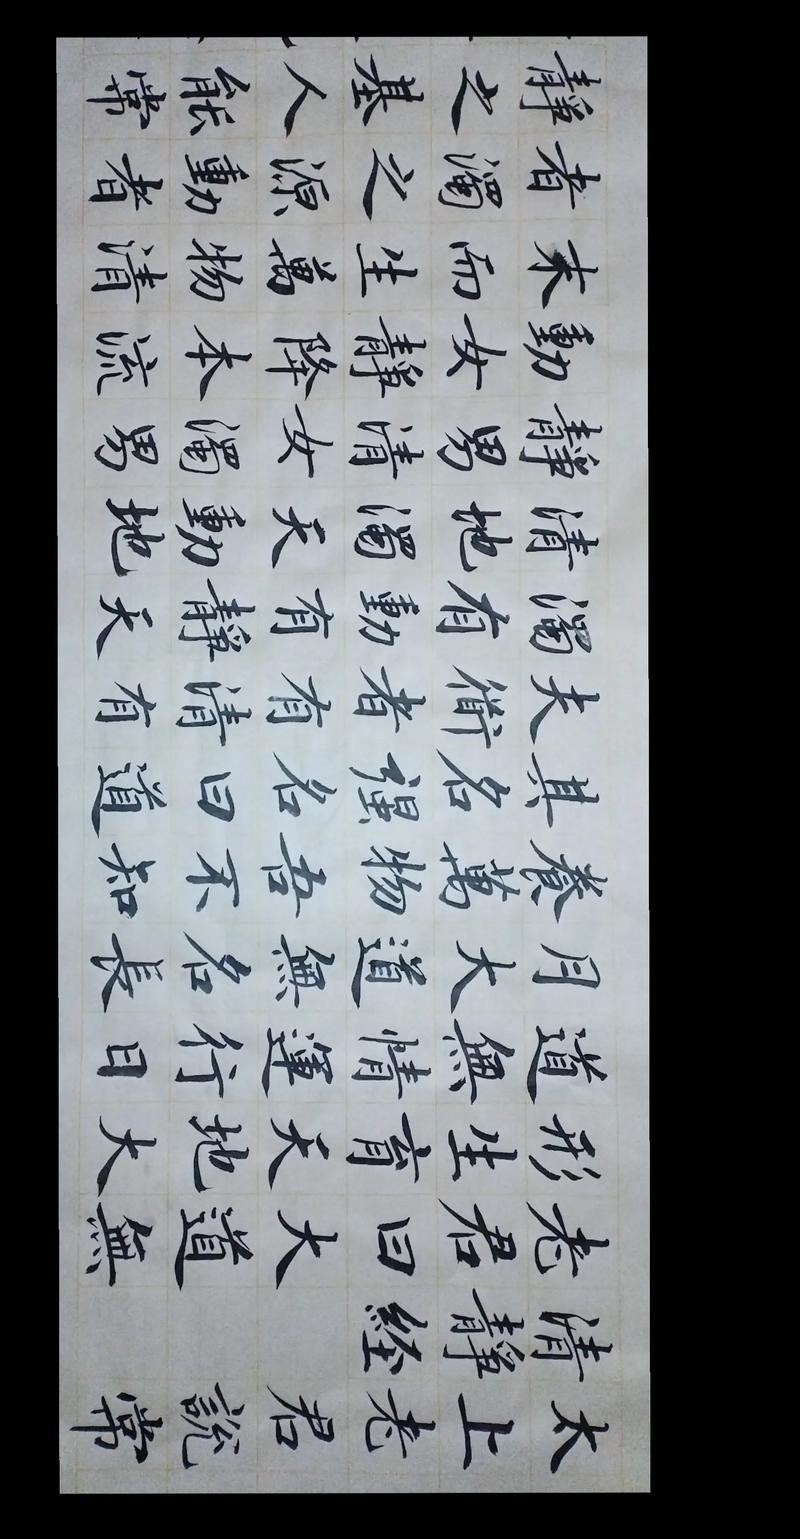 太上老君說常
清靜経
老君曰大道無
形生育天地大
道無情運行日
月大道無名長
養萬物吾不知
其名强名曰道
夫衟者有清有
濁有動有靜天
清地濁天動地
靜男清女濁男
動女靜降本流
末而生萬物清
者濁之源動者
靜之基人能常